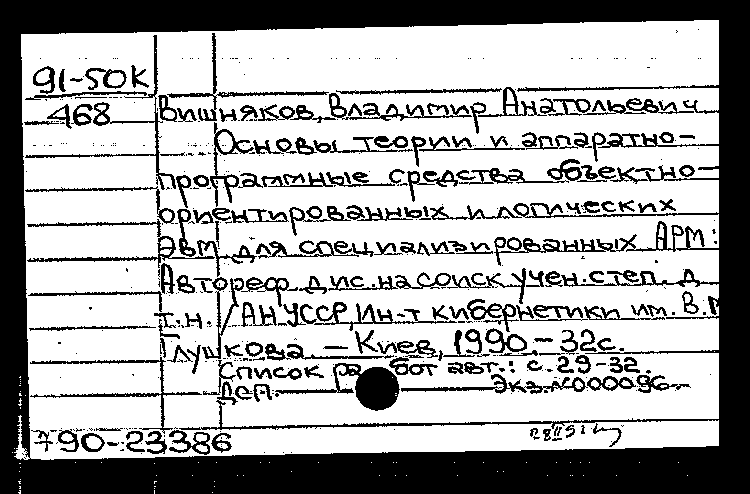 91-50К
468 Вишняков, Владимир Анатольевич
Основы теории и аппаратно-
программные средства объектно-
ориентированных и логических
ЭВМ для специализированных АРМ:
Автореф дис. на соиск учен. степ. д
т.н. / АН УССР, Ин-т кибернетики им. В.М
Глушкова. – Киев, 1990. – 32с.
Список работ авт.: с. 29-32.
ДСП. Экз. №000096
790-23386